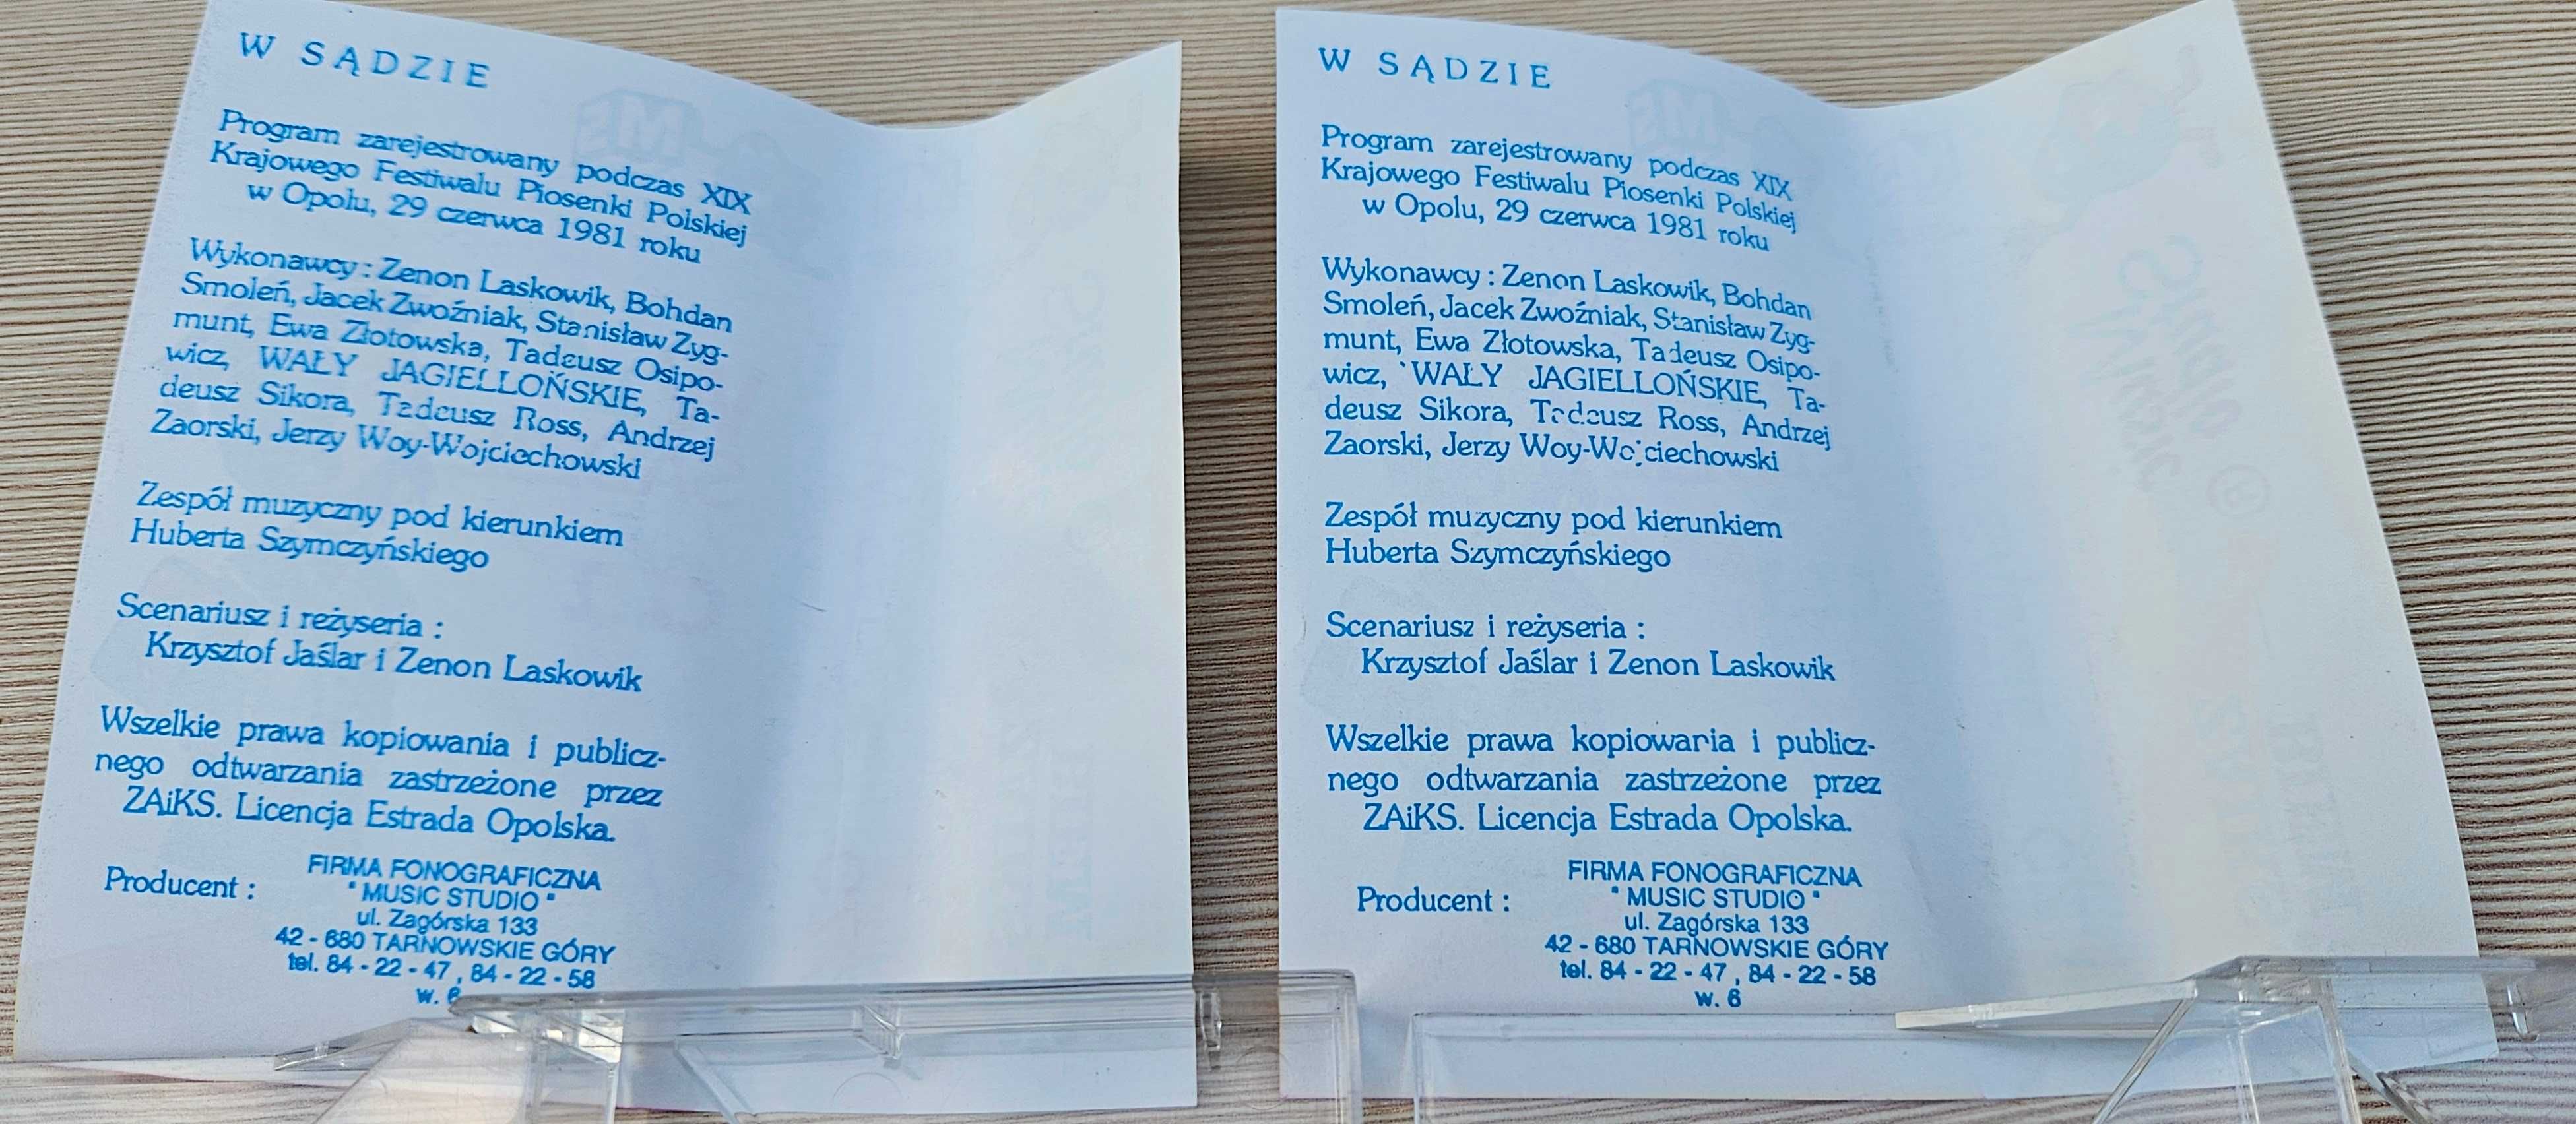 W SĄDZIE
Program zarejestrowany podczas XIX
Krajowego Festiwalu Piosenki Polskiej
w Opolu, 29 czerwca 1981 roku
Wykonawcy : Zenon Laskowik, Bohdan
Smoleń, Jacek Zwoźniak, Stanisław Zyg-
munt, Ewa Złotowska, Tadeusz Osipo-
wicz, WAŁY JAGIELLOŃSKIE, Ta-
deusz Sikora, Tadeusz Ross, Andrzej
Zaorski, Jerzy Woy-Wojciechowski
Zespół muzyczny pod kierunkiem
Huberta Szymczyńskiego
Scenariusz i reżyseria :
Krzysztof Jaślar i Zenon Laskowik
Wszelkie prawa kopiowania i publicz-
nego odtwarzania zastrzeżone przez
ZAiKS. Licencja Estrada Opolska.
Producent :
FIRMA FONOGRAFICZNA
" MUSIC STUDIO "
ul. Zagórska 133
42 - 680 TARNOWSKIE GÓRY
tel. 84 - 22 - 47 , 84 - 22 - 58
w. 6
W SĄDZIE
Program zarejestrowany podczas XIX
Krajowego Festiwalu Piosenki Polskiej
w Opolu, 29 czerwca 1981 roku
Wykonawcy : Zenon Laskowik, Bohdan
Smoleń, Jacek Zwoźniak, Stanisław Zyg-
munt, Ewa Złotowska, Tadeusz Osipo-
wicz, WAŁY JAGIELLOŃSKIE, Ta-
deusz Sikora, Tadeusz Ross, Andrzej
Zaorski, Jerzy Woy-Wojciechowski
Zespół muzyczny pod kierunkiem
Huberta Szymczyńskiego
Scenariusz i reżyseria :
Krzysztof Jaślar i Zenon Laskowik
Wszelkie prawa kopiowania i publicz-
nego odtwarzania zastrzeżone przez
ZAiKS. Licencja Estrada Opolska.
Producent :
FIRMA FONOGRAFICZNA
" MUSIC STUDIO "
ul. Zagórska 133
42 - 680 TARNOWSKIE GÓRY
tel. 84 - 22 - 47 , 84 - 22 - 58
w. 6